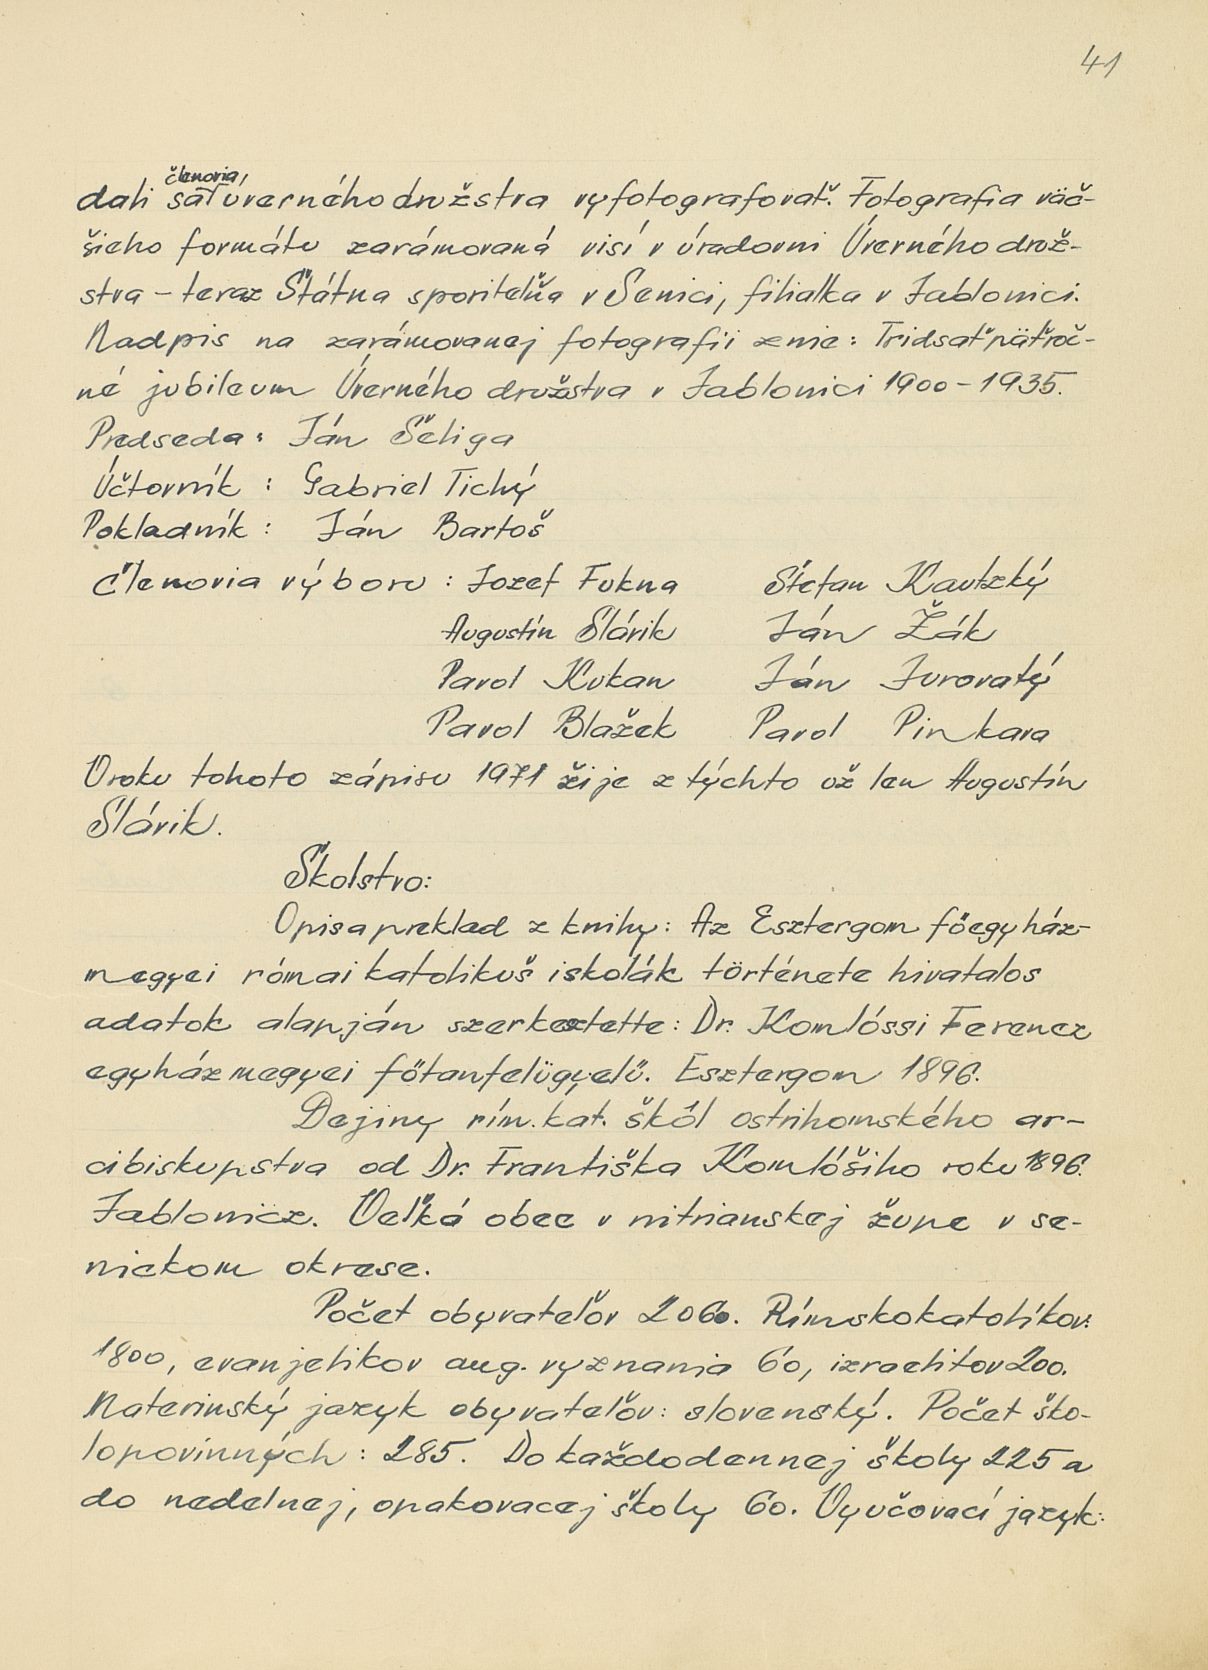 41
členovia,
dali sať úverného družstva vyfotografovať. Fotografia väč-
šieho formátu zarámovaná visí v úradovni Úverného druž-
stva – teraz Štátna sporiteľňa v Senici, filialka v Jablonici.
Nadpis na zarámovanej fotografii znie: Tridsaťpäťroč-
né jubileum Úverného družstva v Jablonici 1900 – 1935.
Predseda: Ján Šeliga
Účtovník: Gabriel Tichý
Pokladník: Ján Bartoš
Členovia výboru: Jozef Fukna Štefan Kautzký
Augustín Slárik Ján Žák
Pavol Kukan Ján Jurovatý
Pavol Blažek Pavol Pinkava
V roku tohoto zápisu 1971 žije z týchto už len Augustín
Slárik.
Školstvo:
Opis a preklad z knihy: Az Esztergom főegyház-
megyei római katolikuš iskolák története hivatalos
adatok alapján szerkesztette: Dr. Komlóssi Ferencz
egyházmegyei főtanfelügyelő. Esztergom 1896.
Dejiny rím. kat. škôl ostrihomského ar-
cibiskupstva od Dr. Františka Komlóšiho roku 1896.
Jablonicz. Veľká obec v nitrianskej župe v se-
nickom okrese.
Počet obyvateľov 2060. Rímskokatolíkov:
1800, evanjelikov aug. vyznania 60, izraelitov 200.
Materinský jazyk obyvateľov: slovenský. Počet ško-
lopovinných: 285. Do každodennej školy 225 a
do nedelnej, opakovacej školy 60. Vyučovací jazyk: